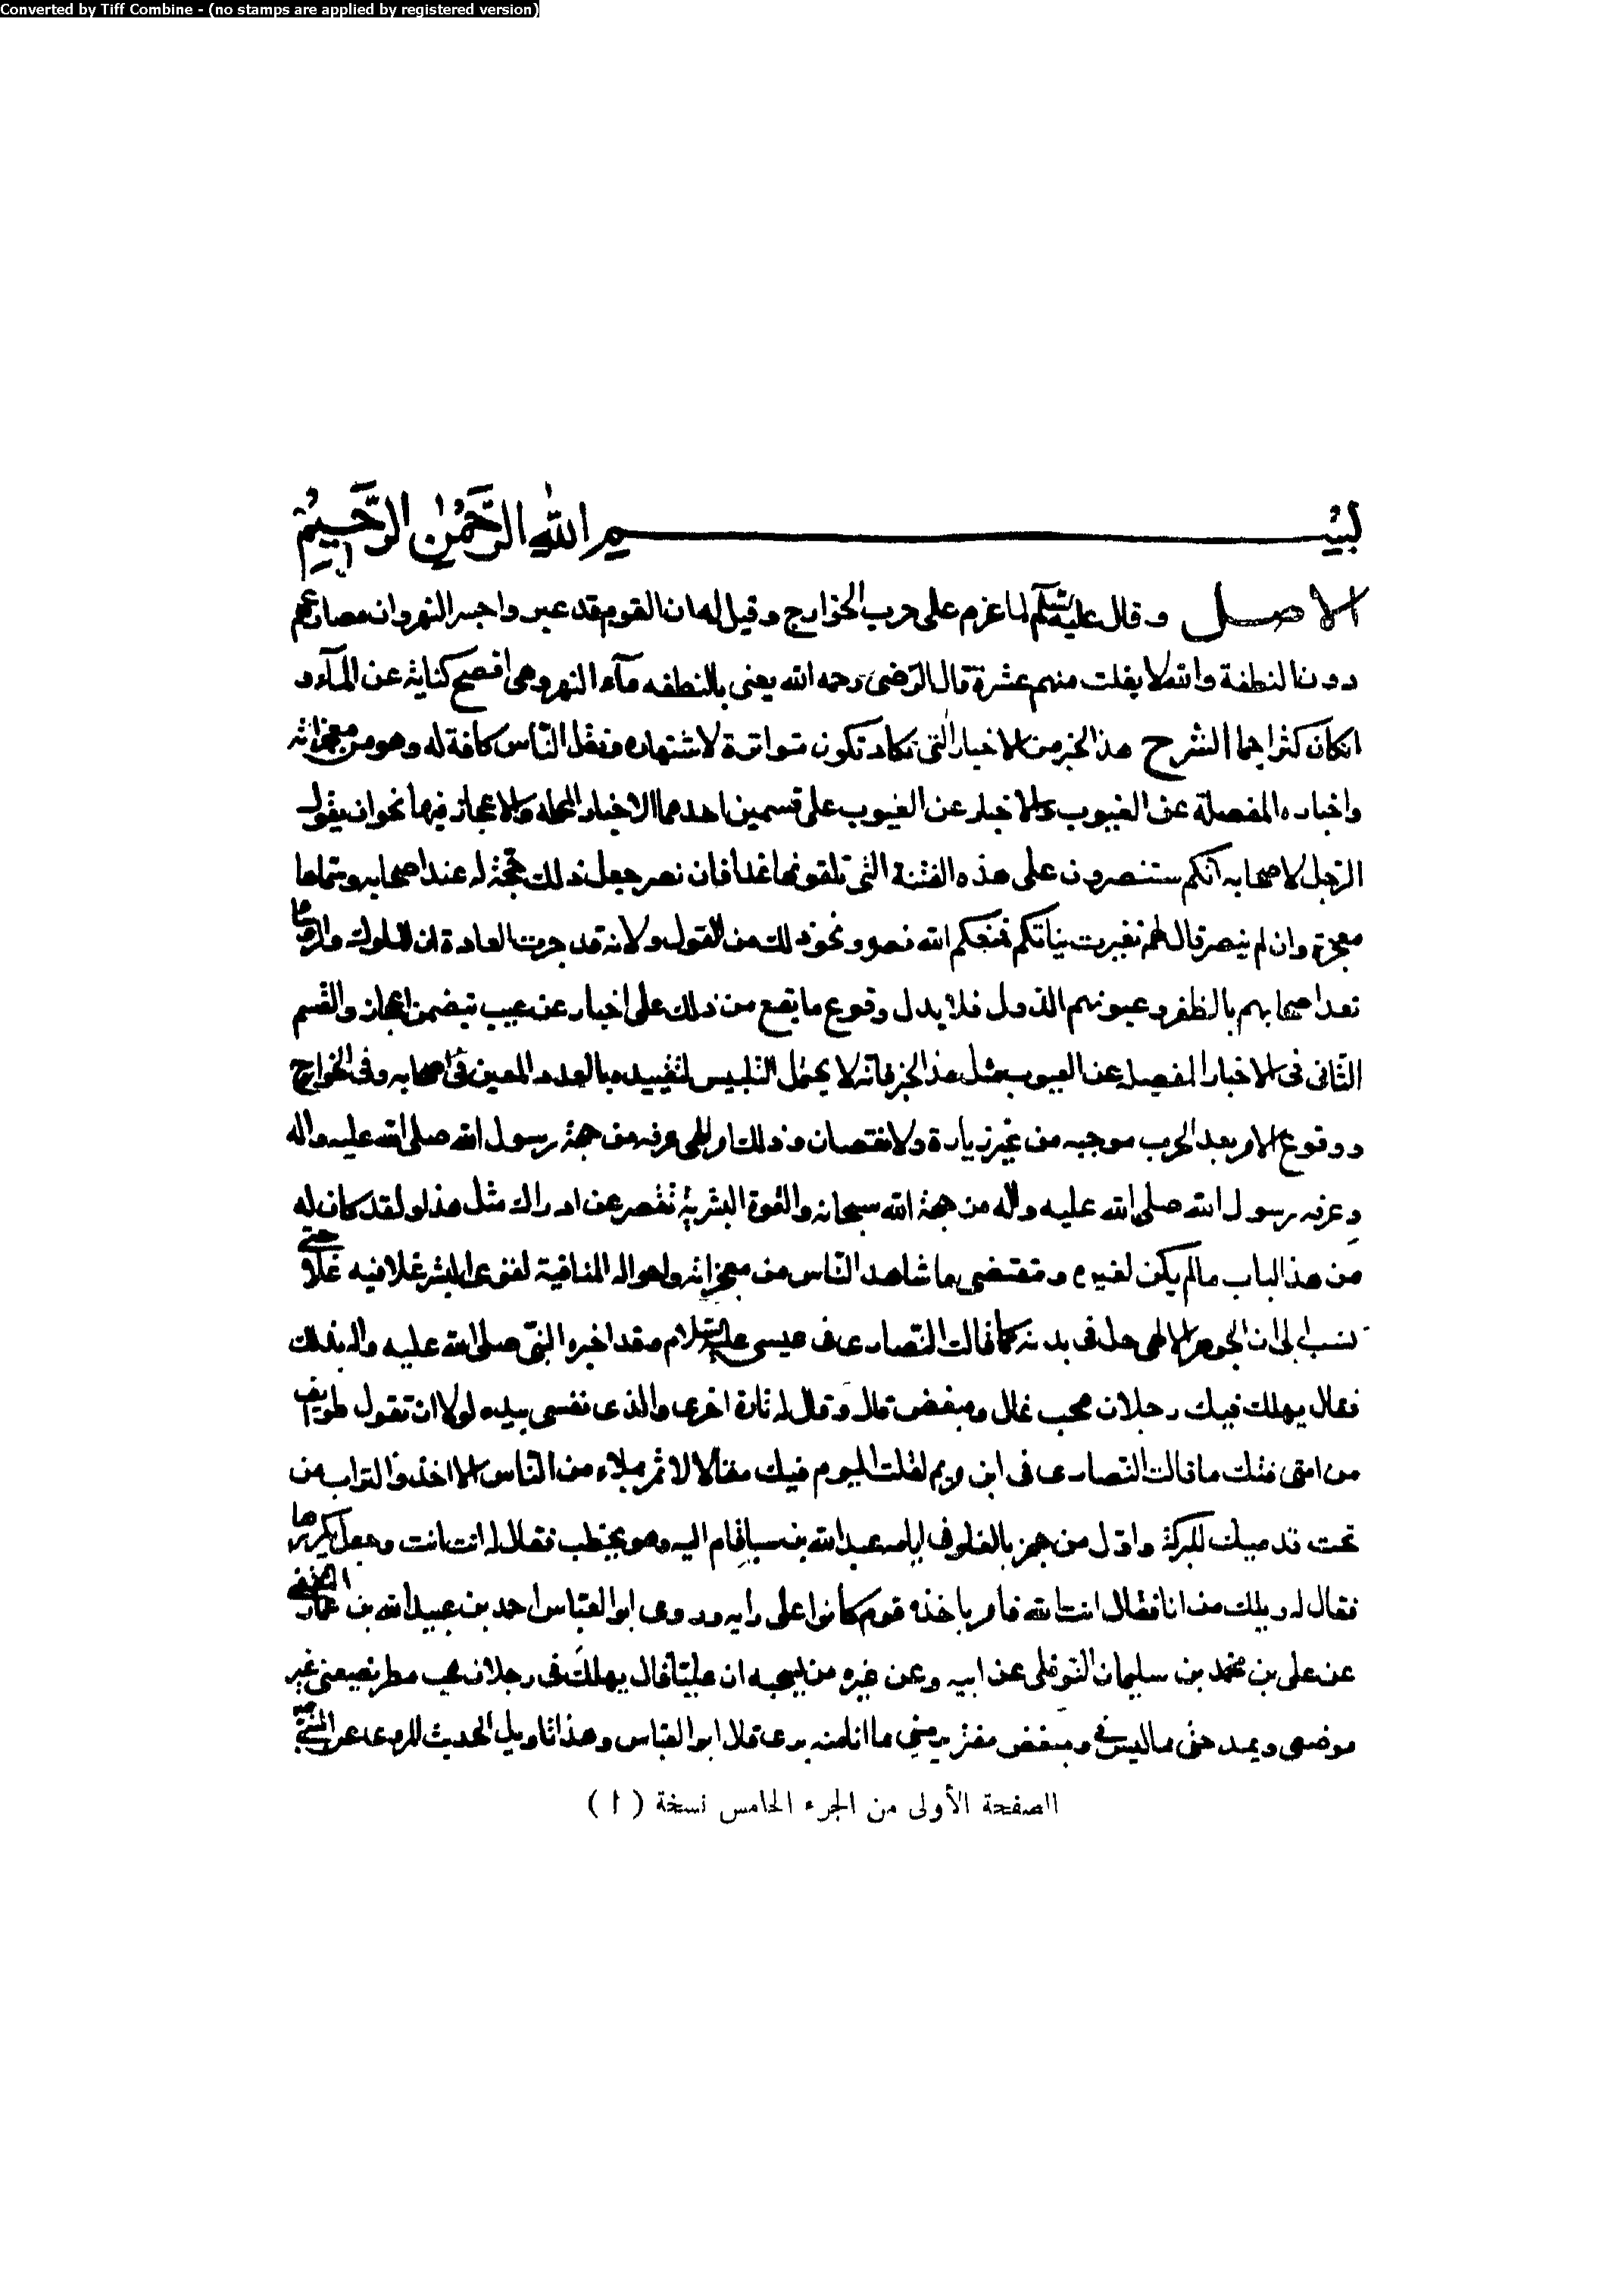 Converted by Tiff Combine - (no stamps are applied by registered version)
بسم الله الرحمن الرحيم
الاصل وقال عليه السلم لما عزم على حرب الخوارج وقيل له ان القوم قد عبروا جسر النهروان مصارعهم
دون النطفة والله لا يفلت منهم عشرة قال الرضى رحمه الله يعنى بالنطفه مآء النهر وهى افصح كناية عن المآء و
ان كان كثيرا جما الشرح هذا الخبر من الاخبار التى تكاد تكون متواترة لاشتهاره ونقل الناس كافة له وهو من معجزاته
واخباره المفصلة عن الغيوب والاخبار عن الغيوب على قسمين احدهما الاخبار المجمله ولا اعجاز فيها نحو ان يقول
الرجل لاصحابه انكم ستنصرون على هذه الفئة التى تلقونها غدا فان نصر جعل ذلك حجة له عند اصحابه وسماها
معجزة وان لم ينصر قال لهم تغيرت نياتكم فمنعكم الله نصره ونحو ذلك من القول ولانه قد جرت العادة ان الملوك والرؤسا
تعد اصحابهم بالظفر و الدول فلا يدل وقوع ما يقع من ذلك على اخبار عن غيب يتضمن اعجازا والقسم
الثانى فى الاخبار المفصله عن الغيوب مثل هذا الخبر فانه لا يحتمل التلبيس لتقييده بالعدد المعين فى اصحابه وفى الخوارج
ووقوع الامر بعد الحرب بموجبه من غير زيادة ولا نقصان وذلك امر الهى عرفه من جهة رسول الله صلى الله عليه واله
وعرفه رسول الله صلى الله عليه واله من جهة الله سبحانه والقوة البشرية تقصر عن ادراك مثل هذا ولقد كان له
من هذا الباب ما لم يكن لغيره و بمقتضى ما شاهد الناس من معجزاته واحواله المنافية لقوى البشر غلا فيه من غلا حتى
نسب الى ان الجوهر الالهى حل فى بدنه كما قالت النصارى فى عيسى عليه السلام وقد اخبره النبى صلى الله عليه واله بذلك
فقال يهلك فيك رجلان محب غال ومبغض قال وقال له تارة اخرى والذى نفسى بيده لولا ان تقول طوايف
من امتى فيك ما قالت النصارى فى ابن مريم لقلت اليوم فيك مقالا لا تمر بملاء من الناس الا اخذوا التراب من
تحت قدميك للبركة واول من جهر بالغلو فى ايامه عبد الله بن سبا قام اليه وهو يخطب فقال له انت انت وجعل يكررها
فقال له ويلك من انا فقال انت الله فامر باخذه قوم كانوا على رايه وروى ابو العباس احمد بن عبيد الله بن عمار الثقفى
عن على بن محمد بن سليمان النوفلى عن ابيه وعن غيره من ان عليا قال يهلك فى رجلان محب مطر يضعنى غير
موضعى ويمدحنى بما ليس فى ومبغض مفتر يرمينى بما انا منه برى قال ابو العباس وهذا تاويل الحديث المروى عن النبى
الصفحة الأولى من الجزء الخامس نسخة ( ا )